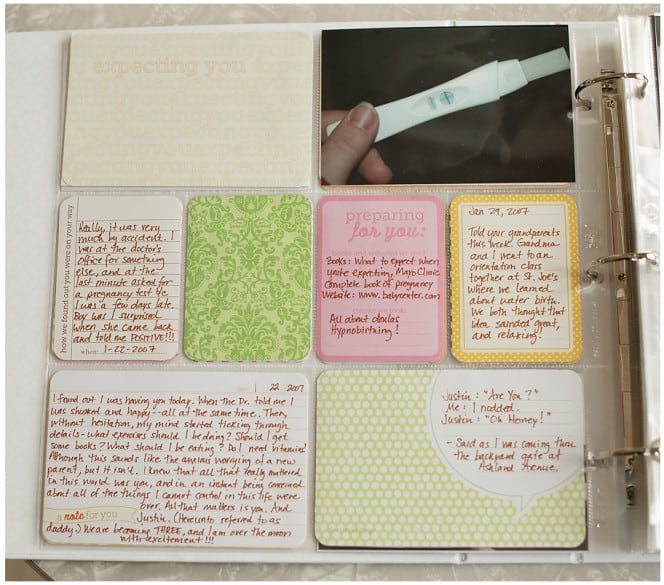 expecting you
how we found out you were on your way
Really, it was very
much by accident. I
was at the doctor's
office for something
else, and at the
last minute asked for
a pregnancy test b/c
I was a few days late.
Boy was I surprised
when she came back
and told me POSITIVE!!!
when: 1-22-2007
preparing
for you:
Books: What to expect when
you're expecting, Mayo Clinic
Complete book of pregnancy
Website: www.babycenter.com
All about doulas
Hypnobirthing!
Jan 29, 2007
Told your grandparents
this week. Grandma
and I went to an
orientation class
together at St. Joe's
where we learned
about water birth.
We both thought that
idea sounded great,
and relaxing!
1 22 2007
I found out I was having you today. When the Dr. told me I
was shocked and happy--all at the same time. Then,
without hesitation, my mind started ticking through
details - what exercises should I be doing? Should I get
some books? What should I be eating? Do I need vitamins?
Although this sounds like the anxious worrying of a new
parent, but it isn't. I knew that all that really mattered
in this world was you, and in an instant being concerned
about all of the things I cannot control in this life were
over. All that matters is you. And
a note for you
Justin. (Hereunto referred to as
daddy.) We are becoming THREE, and I am over the moon
with excitement!!!
Justin: "Are You?"
Me: I nodded.
Justin: "Oh Honey!"
- Said as I was coming thru
the backyard gate at
Ashland Avenue.